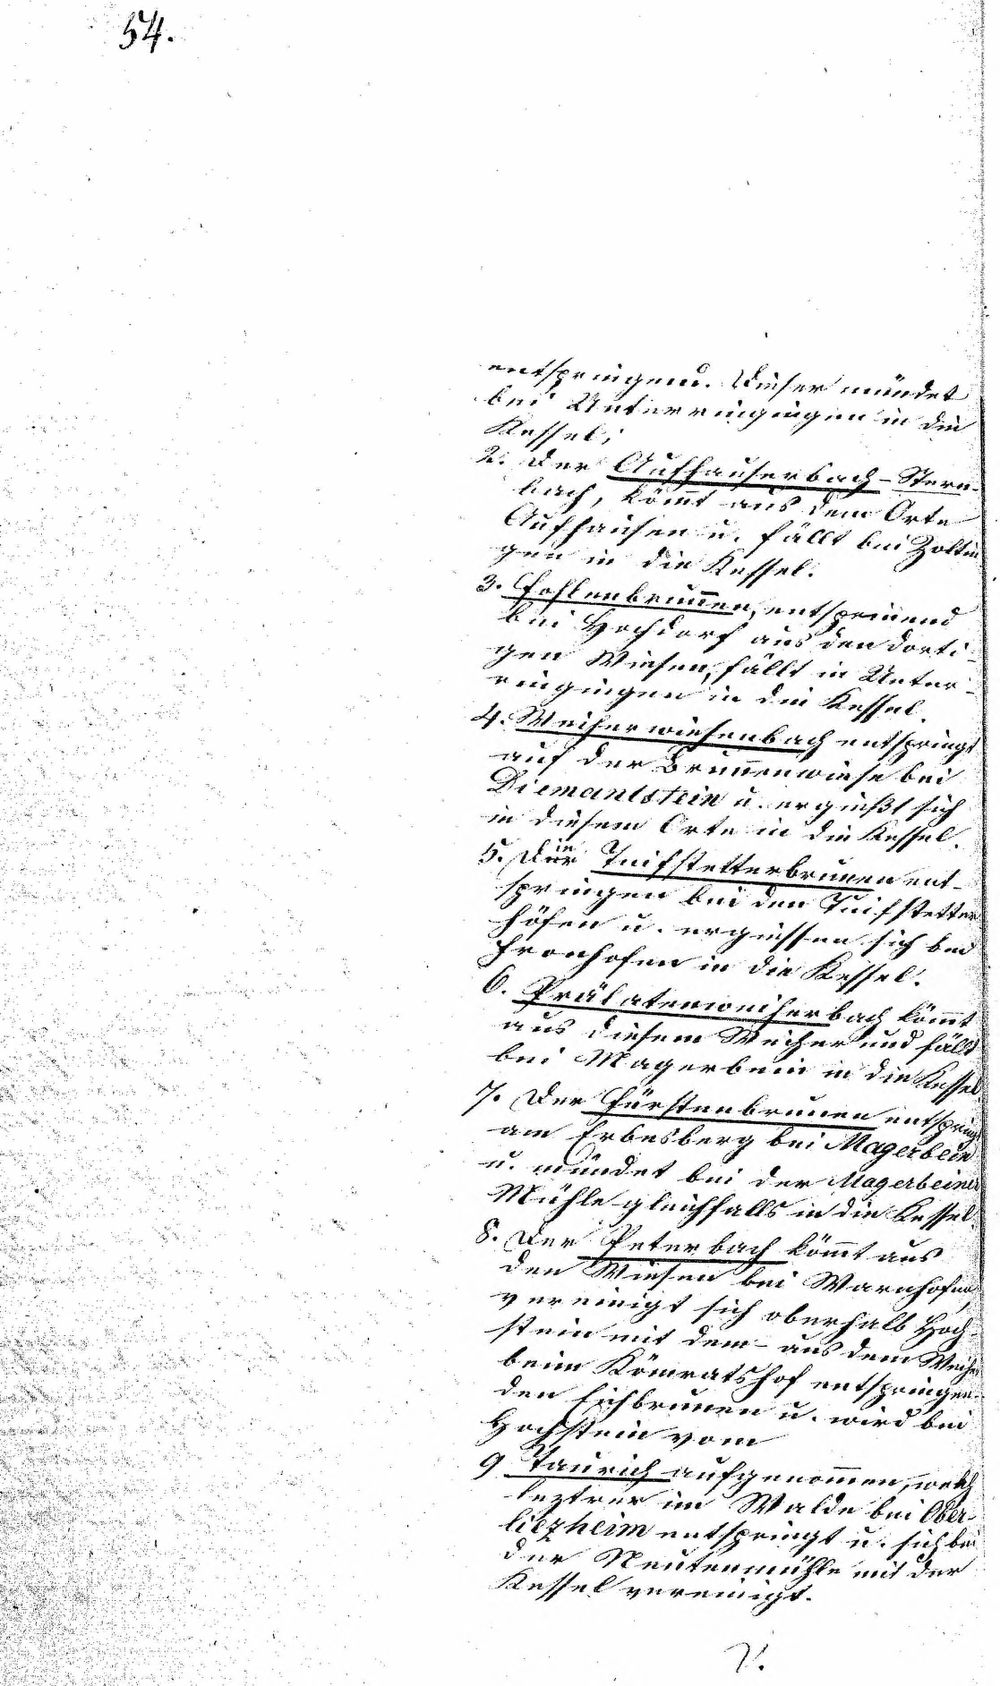 54.
entspringend. Dieser mündet
bei Unterringingen in die
Kessel;
2. Der Aufhauserbach-Stern-
bach, kömt aus dem Orte
Aufhausen u. fällt bei Zoltin
gen in die Kessel.
3. Fohlenbrunnen, entsprinend
bei Hochdorf aus den dorti-
gen Wiesen, fällt in Unter-
ringingen in die Kessel.
4. Weiherwiesenbach entspringt
auf der Brunnenwiese bei
Diemantstein u. ergießt sich
in diesem Orte in die Kessel.
5. Die Tuifstetterbrunen ent-
springen bei den Tuifstetter
höfen u. ergiessen sich bei
Fronhofen in die Kessel.
6. Prälatenweiherbach kömt
aus diesem Weiher und fällt
bei Magerbein in die Kessel
7. Der Fürstenbrunen entspringt
am Erbesberg bei Magerbein
u. mündet bei der Magerbeiner
Mühle gleichfalls in die Kessel.
8. Der Peterbach kömt aus
den Wiesen bei Warnhofen,
vereinigt sich oberhalb Hoch-
stein mit dem aus dem Weiher
beim Kömratshof entspringen-
den Eichbrunen u. wird bei
Hochstein vom
9 Taurich aufgenomen, welch
lezterer im Walde bei Ober-
liezheim entspringt u. sich bei
der Neutenmühle mit der
Kessel vereinigt.
V.